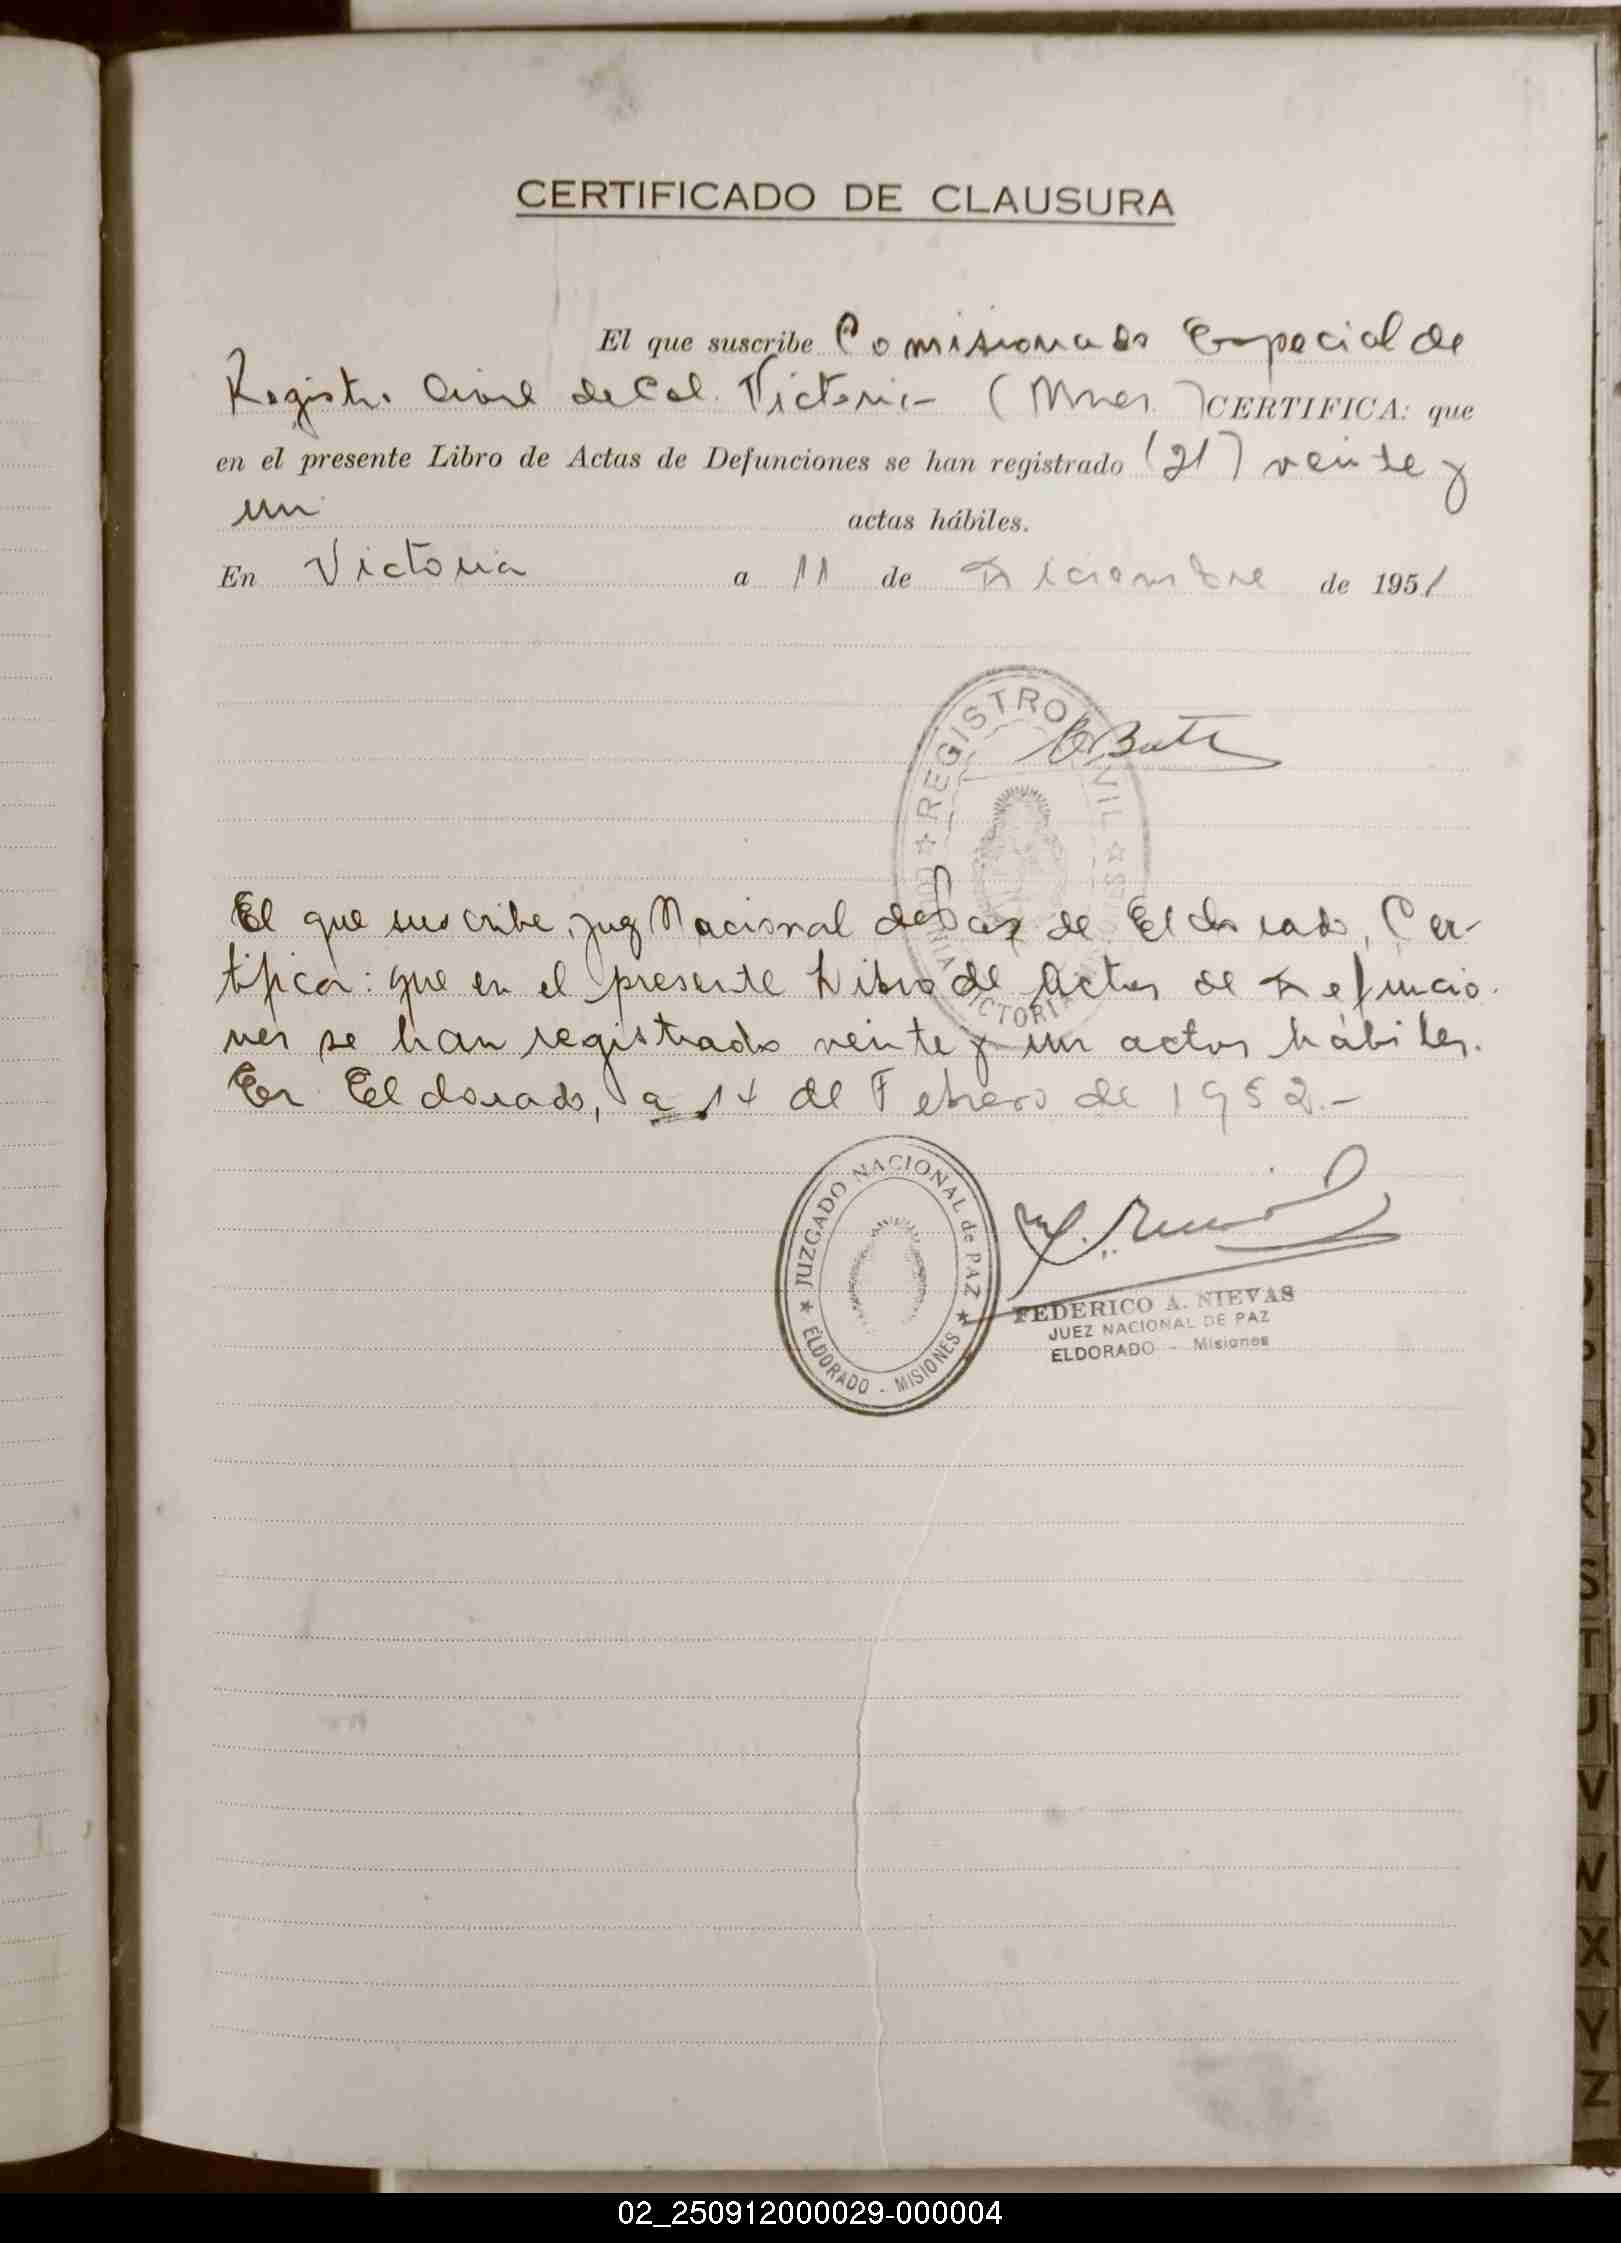 CERTIFICADO DE CLAUSURA
El que suscribe Comisionado Especial de
Registro Civil de Col. Victoria (Mnes.) CERTIFICA: que
en el presente Libro de Actas de Defunciones se han registrado (21) veinte y
un actas hábiles.
En Victoria a 11 de Diciembre de 1951
REGISTRO CIVIL
VICTORIA
El que suscribe, Juez Nacional de Paz de Eldorado, Cer-
tifica: que en el presente Libro de Actas de Defuncio-
nes se han registrado veinte y un actas hábiles.
En Eldorado, a 14 de Febrero de 1952.-
JUZGADO NACIONAL de PAZ
ELDORADO - MISIONES
FEDERICO A. NIEVAS
JUEZ NACIONAL DE PAZ
ELDORADO - Misiones
Q
R
S
T
U
V
W
X
Y
Z
02_250912000029-000004